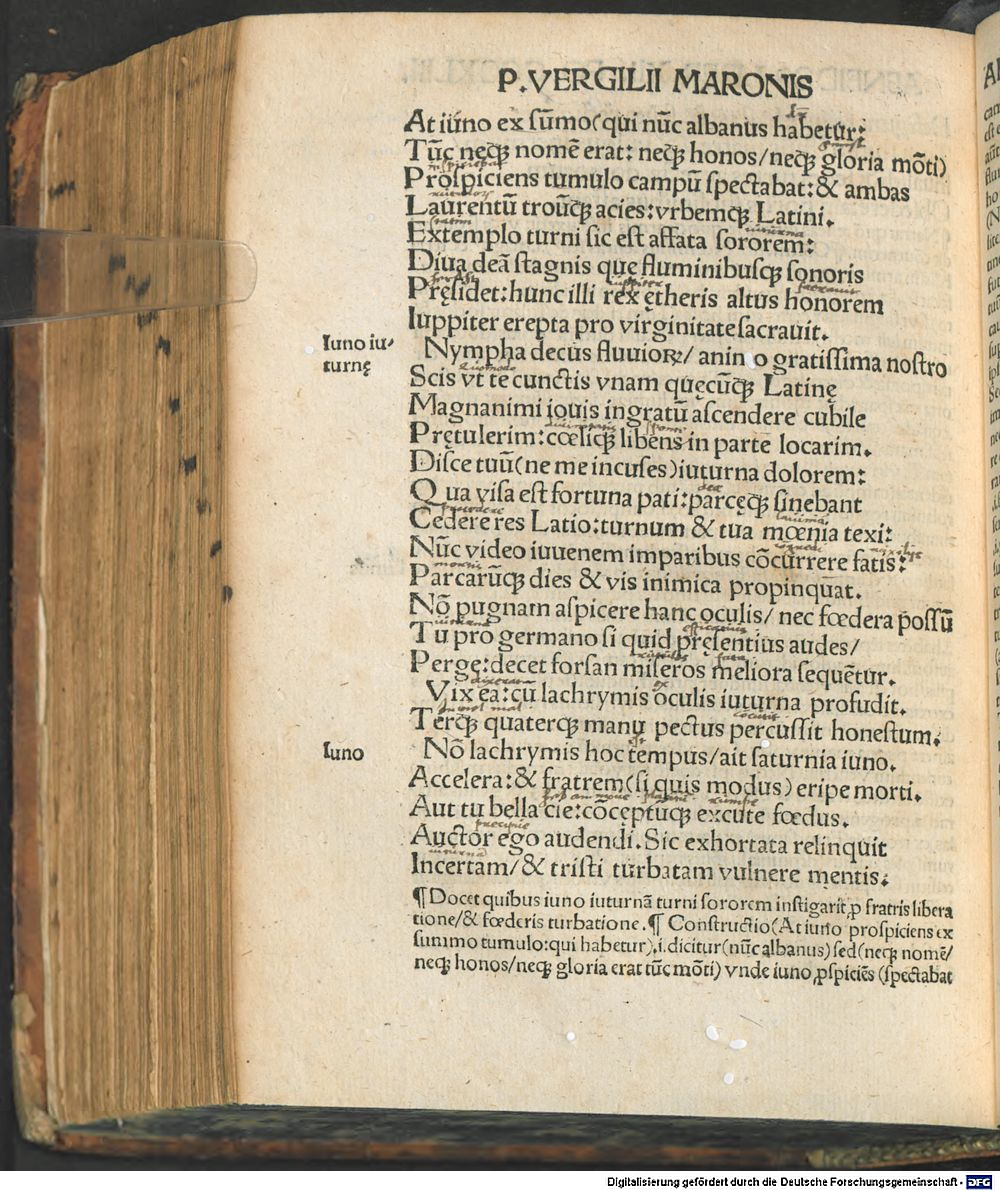 P.VERGILII MARONIS
At iuno ex sũmo(qui nũc albanus habetur:
Tũc neqꝫ nomẽ erat: neqꝫ honos/neqꝫ gloria mõti)
Prospiciens tumulo campũ spectabat:& ambas
Laurentũ trouũqꝫ acies:vrbemqꝫ Latini.
Extemplo turni sic est affata sororem:
Diua deã stagnis que fluminibusqꝫ sonoris
Pręsidet:hunc illi rex ętheris altus honorem
Iuppiter erepta pro virginitate sacrauit.
Iuno iu-
turnę
Nympha decus fluuioꝝ/ anin o gratissima nostro
Scis vt te cunctis vnam quęcũqꝫ Latinę
Magnanimi iouis ingratũ ascendere cubile
Prętulerim:cœliqꝫ libens in parte locarim.
Disce tuũ(ne me incuses)iuturna dolorem:
Qua visa est fortuna pati:parcęqꝫ sinebant
Cedere res Latio:turnum & tua mœnia texi:
Nũc video iuuenem imparibus cõcurrere fatis:
Parcarũqꝫ dies & vis inimica propinquat.
Nõ pugnam aspicere hanc oculis/ nec fœdera possũ
Tu pro germano si quid pręsentius audes/
Perge:decet forsan miseros meliora sequẽtur.
Vix ea:cũ lachrymis oculis iuturna profudit.
Terqꝫ quaterqꝫ manu pectus percussit honestum.
Iuno
Nõ lachrymis hoc tempus/ait saturnia iuno.
Accelera:& fratrem(si quis modus) eripe morti.
Aut tu bella cie:cõceptuqꝫ excute fœdus.
Auctor ego audendi.Sic exhortata relinquit
Incertam/& tristi turbatam vulnere mentis.
¶Docet quibus iuno iuturnã turni sororem instigarit,ꝓ fratris libera
tione/& fœderis turbatione.¶ Constructio(At iuno prospiciens ex
summo tumulo:qui habetur).i.dicitur(nũc albanus)sed(neqꝫ nomẽ/
neqꝫ honos/neqꝫ gloria erat tũc mõti) vnde iuno ꝓspiciẽs (spectabat
Digitalisierung gefördert durch die Deutsche Forschungsgemeinschaft - DFG